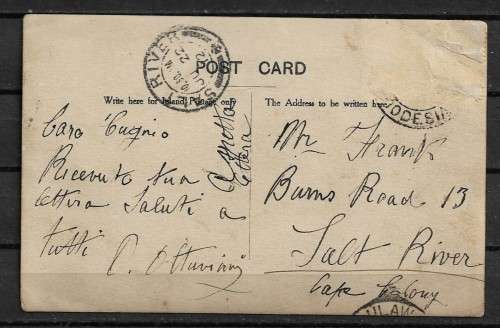 POST CARD
Write here for Inland Postage only
The Address to be written here
RIVER
ODESIA
Caro Cugino
Ricevuto tua
lettera Saluti a
tutti
Mr Frank
Burns Road 13
Salt River
Cape Colony
ULAW